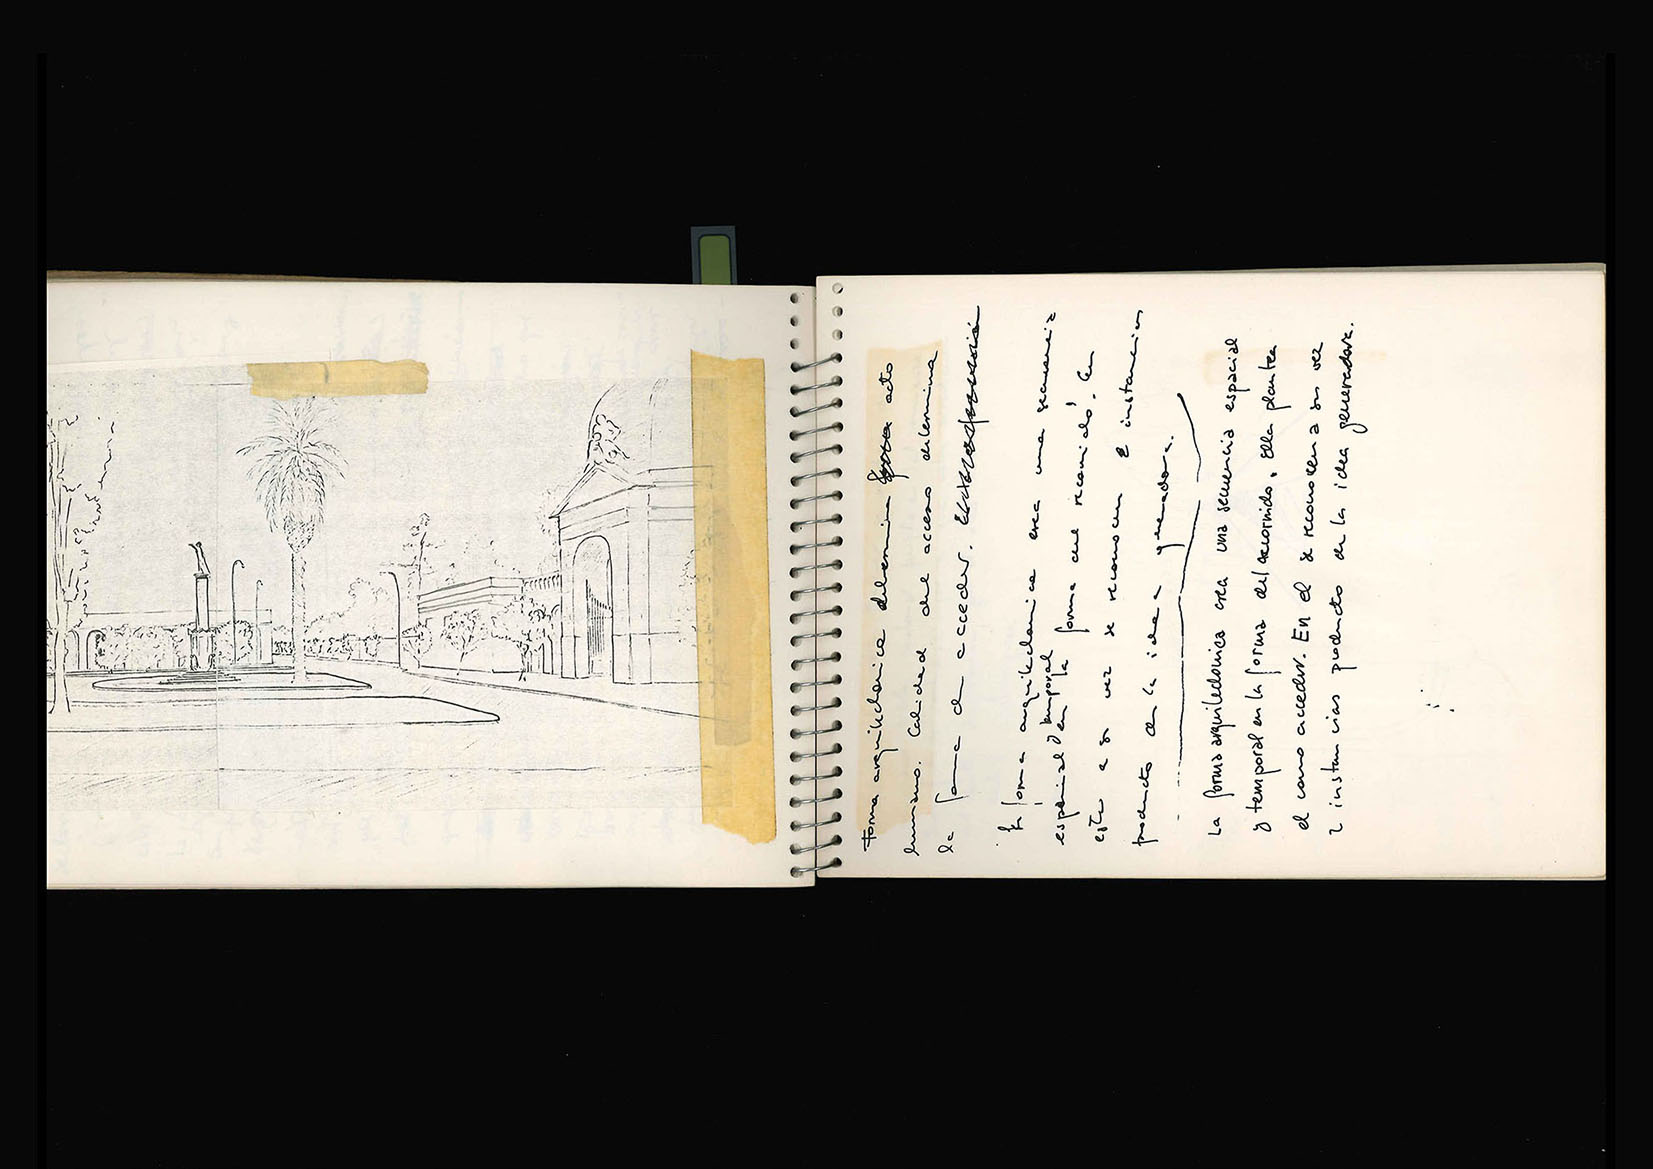 Forma arquitectónica determina acto
humano. Calidad del acceso determina
la forma de acceder.
la forma arquitectónica crea una secuencia
espacial y temporal en la forma del recorrido. En
este a su vez se reconocen e instancias
producto de la idea generadora.
La forma arquitectonica crea una secuencia espacial
y temporal en la forma del recorrido. Ella plantea
el como acceder. En el se reconocen a su vez
instancias producto de la idea generadora.